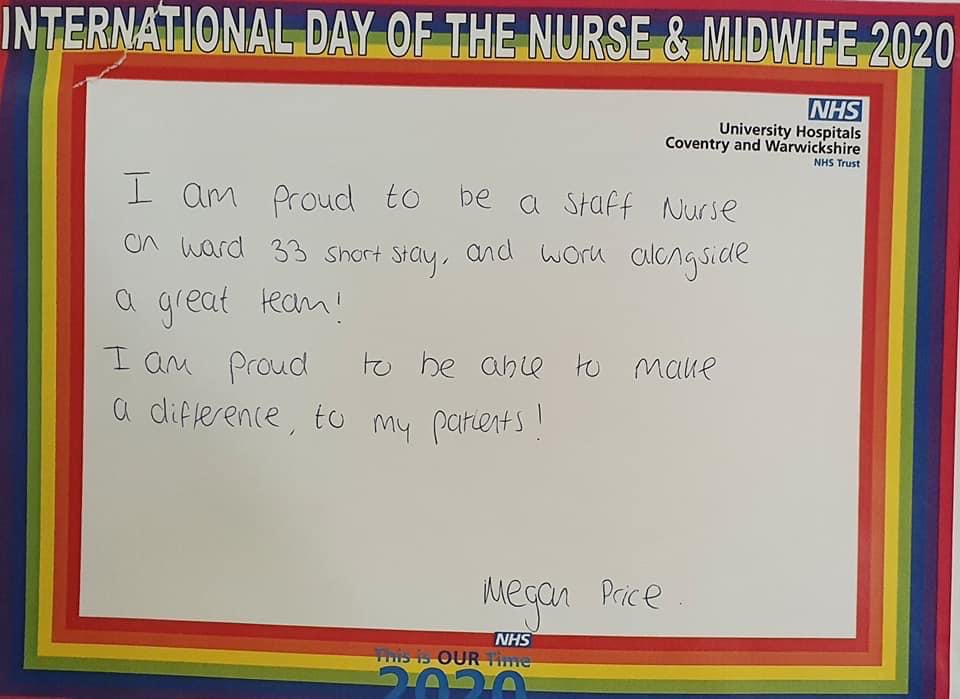 INTERNATIONAL DAY OF THE NURSE & MIDWIFE 2020
NHS
University Hospitals
Coventry and Warwickshire
NHS Trust
I am proud to be a staff Nurse
on ward 33 short stay, and work alongside
a great team!
I am proud to be able to make
a difference, to my patients!
Megan Price.
NHS
This is OUR Time
2020